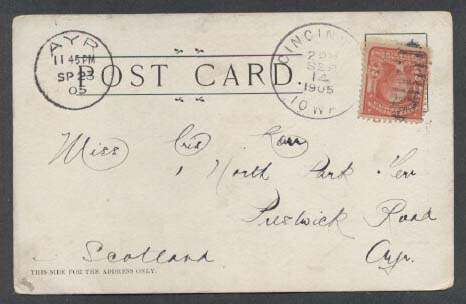 AYR
11 45 PM
SP 23
05
POST CARD
CINCIN
2 PM
SEP
14
1905
IOWA
Miss Iris Karr
1 North Park Terr
Prestwick Road
Ayr.
Scotland
THIS SIDE FOR THE ADDRESS ONLY.